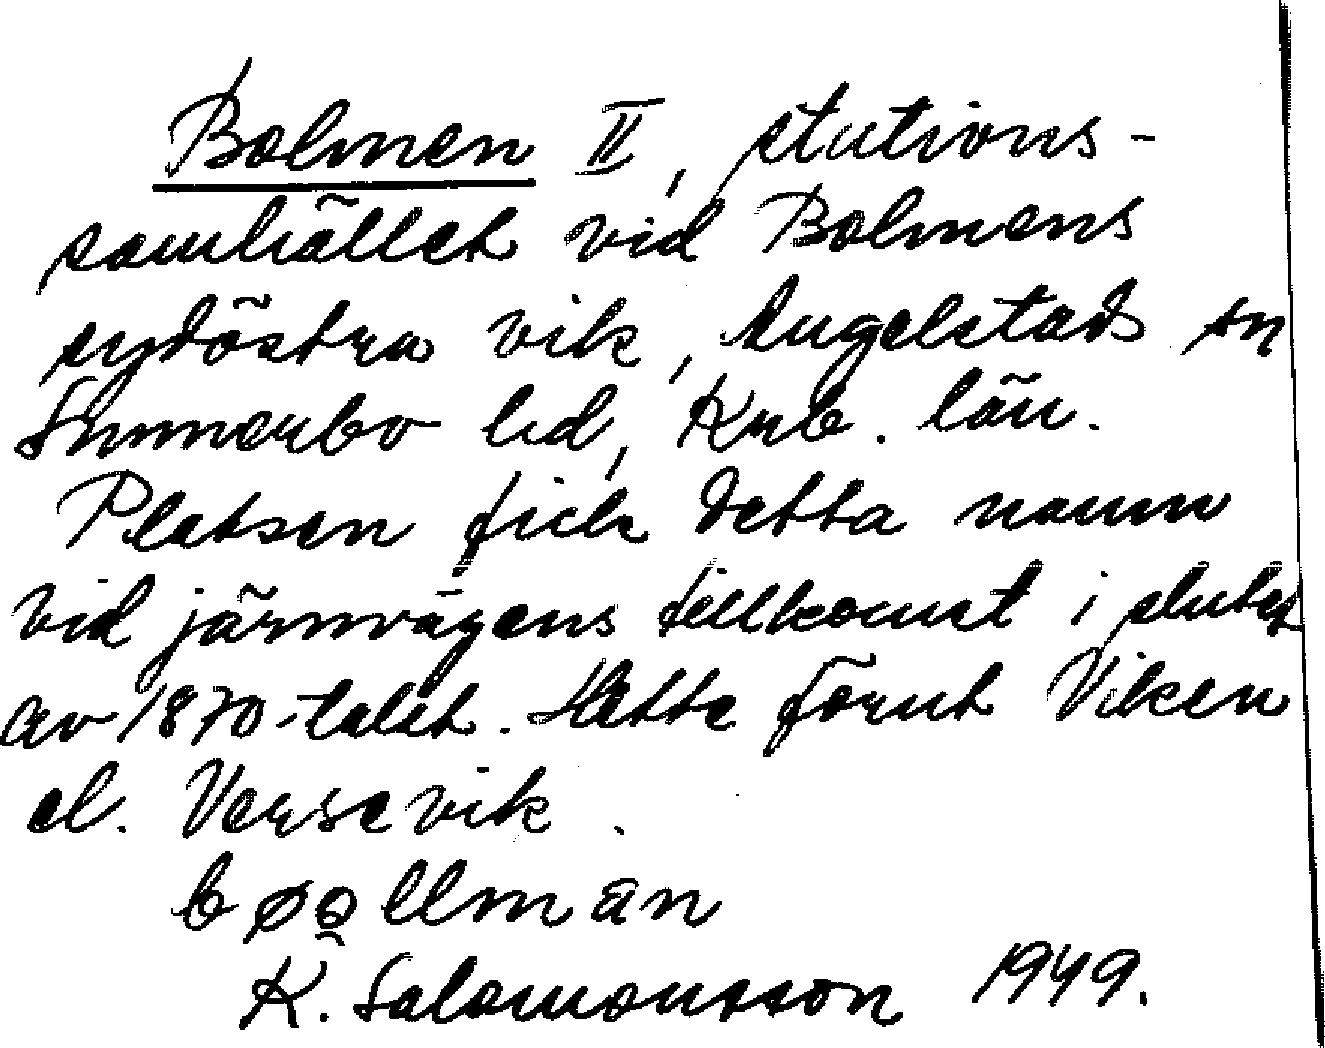 Bolmen II, stations-
samhället vid Bolmens
sydöstra vik, Angelstads sn
Sunnerbo hd, Krb. län.
Platsen fick detta namn
vid järnvägens tillkomst i slutet
av 1870-talet. Hette förut Viken
el. Versevik.
K. Salomonsson 1949.